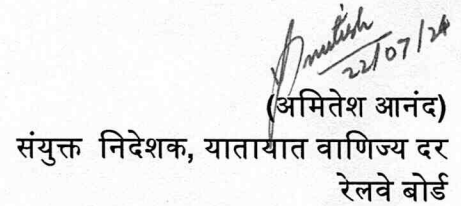 Amitesh
22/07/24
(अमितेश आनंद)
संयुक्त निदेशक, यातायात वाणिज्य दर
रेलवे बोर्ड